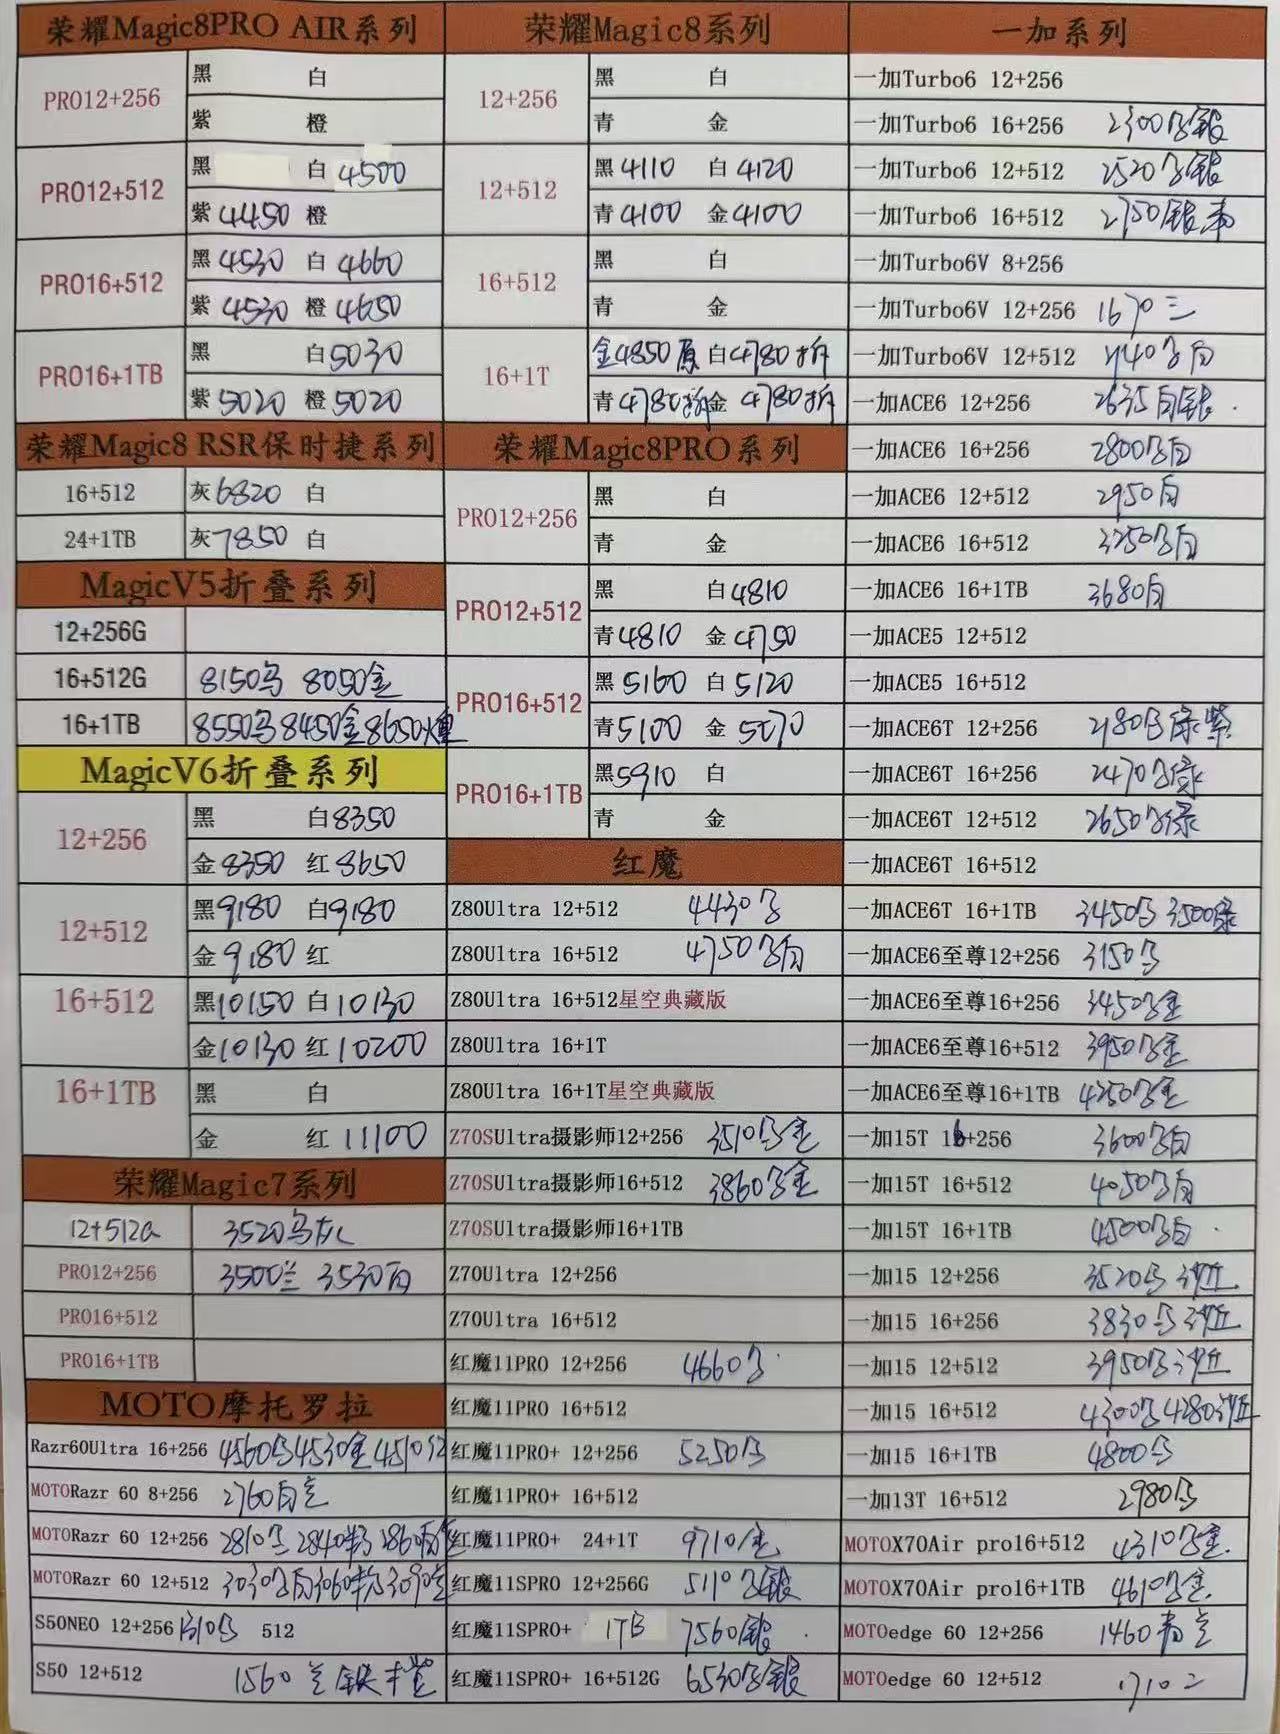 荣耀Magic8PRO AIR系列
PRO12+256
黑 白
紫 橙
PRO12+512
黑 白4500
紫4450 橙
PRO16+512
黑4530 白4660
紫4530 橙4650
PRO16+1TB
黑 白5030
紫5020 橙5020
荣耀Magic8 RSR保时捷系列
16+512 灰6820 白
24+1TB 灰7850 白
MagicV5折叠系列
12+256G
16+512G 8150 8050金
16+1TB 8550 8450金8650
MagicV6折叠系列
12+256
黑 白8350
金8350 红8650
12+512
黑9180 白9180
金9180 红
16+512
黑10150 白10130
金10130 红10200
16+1TB
黑 白
金 红11100
荣耀Magic7系列
12+512G 3520
PRO12+256 3500 3530白
PRO16+512
PRO16+1TB
MOTO摩托罗拉
Razr60Ultra 16+256 4560 4530金 4510
MOTORazr 60 8+256 2760白
MOTORazr 60 12+256 2810 2840 2860
MOTORazr 60 12+512 3030 3060 3090
S50NEO 12+256 512
S50 12+512 1560
荣耀Magic8系列
12+256
黑 白
青 金
12+512
黑4110 白4120
青4100 金4100
16+512
黑 白
青 金
16+1T
金4850原 白4780拆
青4780拆 金4780拆
荣耀Magic8PRO系列
PRO12+256
黑 白
青 金
PRO12+512
黑 白4810
青4810 金4750
PRO16+512
黑5160 白5120
青5100 金5070
PRO16+1TB
黑5910 白
青 金
红魔
Z80Ultra 12+512 4430
Z80Ultra 16+512 4750
Z80Ultra 16+512星空典藏版
Z80Ultra 16+1T
Z80Ultra 16+1T星空典藏版
Z70SUltra摄影师12+256 3510
Z70SUltra摄影师16+512 3860
Z70SUltra摄影师16+1TB
Z70Ultra 12+256
Z70Ultra 16+512
红魔11PRO 12+256 4660
红魔11PRO 16+512
红魔11PRO+ 12+256 5250
红魔11PRO+ 16+512
红魔11PRO+ 24+1T 9710
红魔11SPRO 12+256G 5110
红魔11SPRO+ 1TB 7560银
红魔11SPRO+ 16+512G 6530
一加系列
一加Turbo6 12+256
一加Turbo6 16+256 2300
一加Turbo6 12+512 2520
一加Turbo6 16+512 2750
一加Turbo6V 8+256
一加Turbo6V 12+256 1670
一加Turbo6V 12+512
一加ACE6 12+256 2635白银
一加ACE6 16+256 2800
一加ACE6 12+512 2950白
一加ACE6 16+512 3250
一加ACE6 16+1TB 3680白
一加ACE5 12+512
一加ACE5 16+512
一加ACE6T 12+256
一加ACE6T 16+256 2470
一加ACE6T 12+512 2650
一加ACE6T 16+512
一加ACE6T 16+1TB 3450 3500绿
一加ACE6至尊12+256 3150
一加ACE6至尊16+256 3450
一加ACE6至尊16+512 3950
一加ACE6至尊16+1TB 4250
一加15T 16+256 3600
一加15T 16+512 4050
一加15T 16+1TB 4500
一加15 12+256 3520
一加15 16+256 3830
一加15 12+512 3950
一加15 16+512 4300 4280
一加15 16+1TB 4800
一加13T 16+512 2980
MOTOX70Air pro16+512 4310
MOTOX70Air pro16+1TB 4610
MOTOedge 60 12+256 1460
MOTOedge 60 12+512 1710